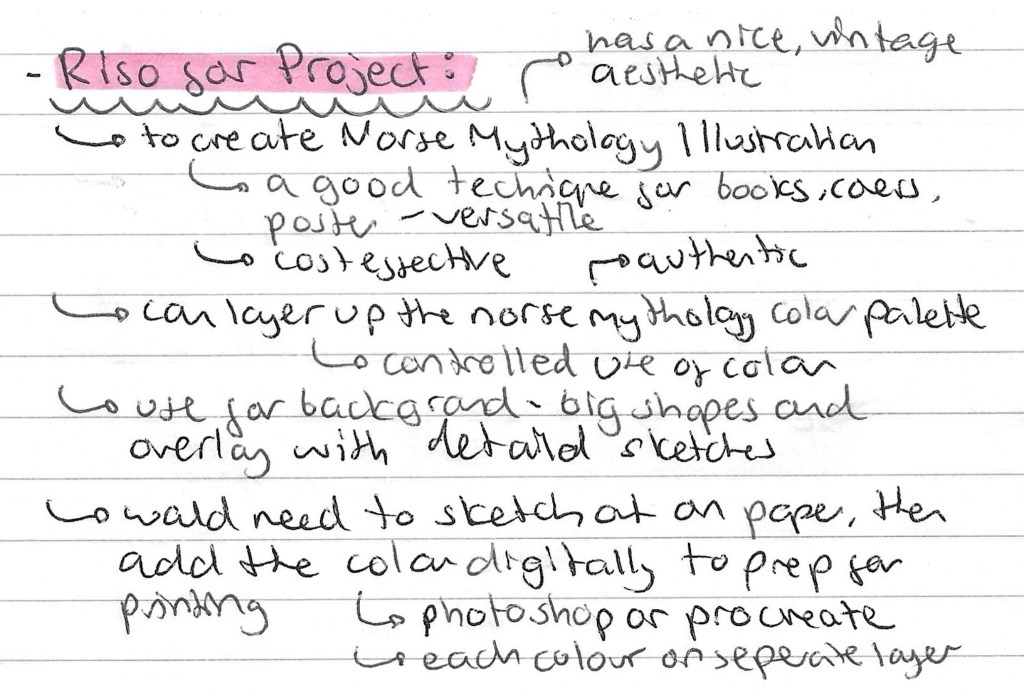 has a nice, vintage
aesthetic
- Riso for Project:
to create Norse Mythology Illustration
a good technique for books, covers,
poster - versatile
cost effective
authentic
can layer up the norse mythology colour palette
controlled use of colour
use for background - big shapes and
overlay with detailed sketches
would need to sketch out on paper, then
add the colour digitally to prep for
printing
photoshop or procreate
each colour on seperate layer